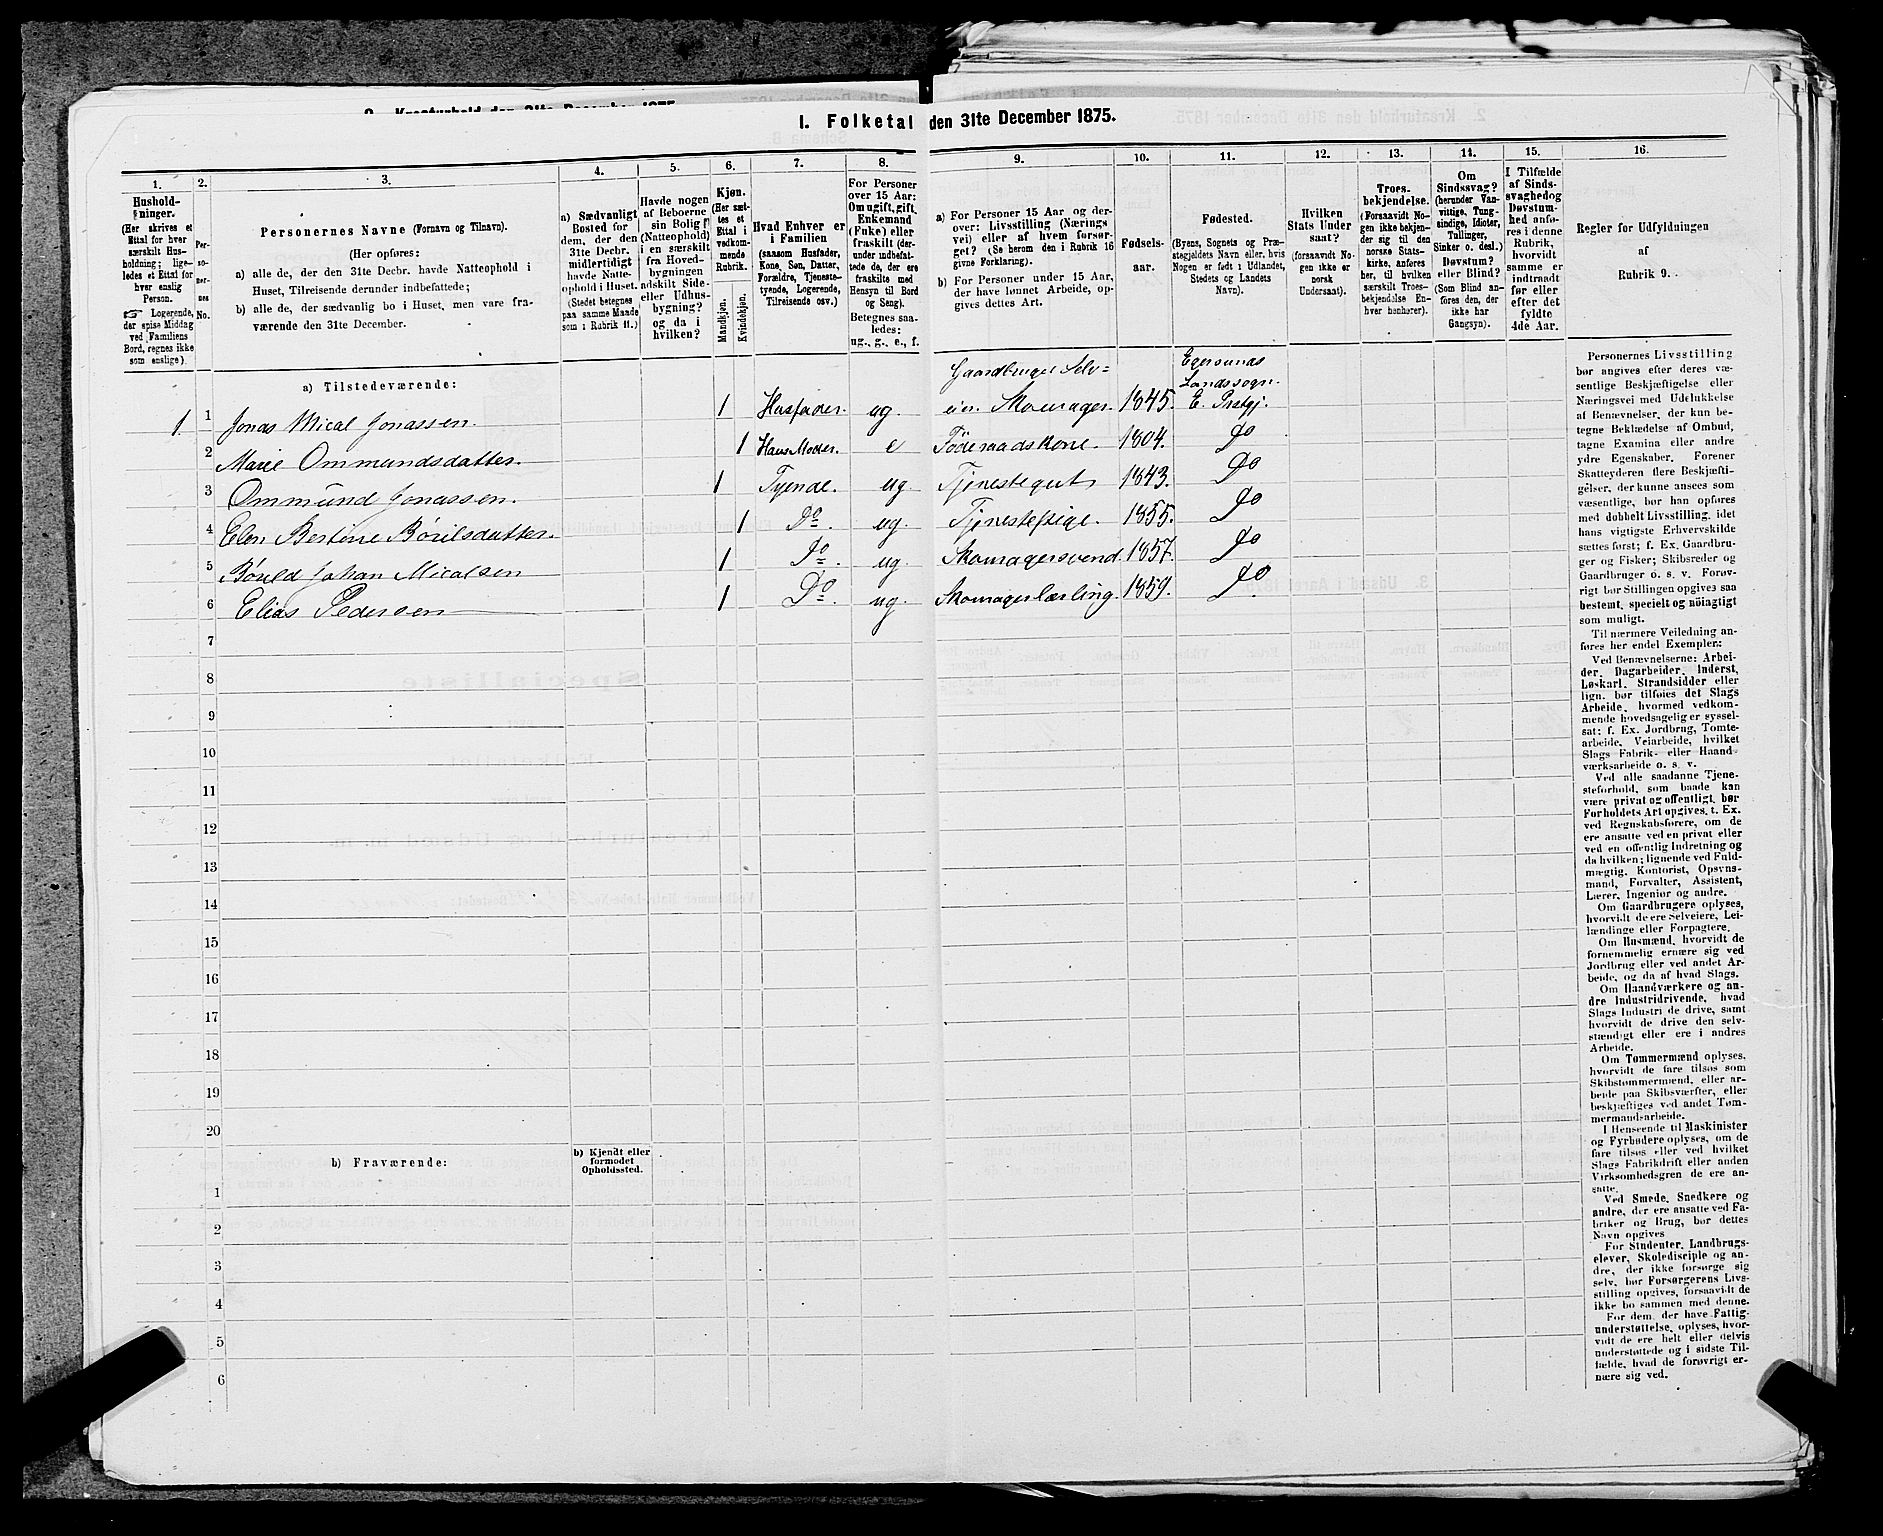 2. Kreaturhold den 31te December 1875.
I. Folketal den 31te December 1875.
1.
Hushold-
ninger.
(Her skrives et
Ettal for hver
særskilt Hus-
holdning; lige-
ledes et Ettal for
hver enslig
Person.
☞ Logerende,
der spise Middag
ved Familiens
Bord, regnes ikke
som enslige).
2.
Per-
so-
ner-
nes
No.
3.
Personernes Navne (Fornavn og Tilnavn).
(Her opføres:
a) alle de, der den 31te Decbr. havde Natteophold i
Huset, Tilreisende derunder indbefattede;
b) alle de, der sædvanlig bo i Huset, men vare fra-
værende den 31te December.
4.
a) Sædvanligt
Bosted for
dem, der den
31te Decbr.
midlertidigt
havde Natte-
ophold i Huset.
(Stedet betegnes
paa samme Maade
som i Rubrik 11.)
5.
Havde nogen
af Beboerne
sin Bolig
(Natteophold)
i en særskilt
fra Hoved-
bygningen
adskilt Side-
eller Udhus-
bygning?
og da i
hvilken?
6.
Kjøn.
(Her sæt-
tes et
Ettal i
vedkom-
mende
Rubrik.
Mandkjøn.
Kvindekjøn.
7.
Hvad Enhver er
i Familien
(saasom Husfader,
Kone, Søn, Datter,
Forældre, Tjeneste-
tyende, Logerende,
Tilreisende osv.)
8.
For Personer
over 15 Aar:
Om ugift, gift,
Enkemand
(Enke) eller
fraskilt (der-
under indbefat-
tede de, der ere
fraskilte med
Hensyn til Bord
og Seng).
Betegnes saa-
ledes:
ug., g., e., f.
9.
a) For Personer 15 Aar og der-
over: Livsstilling (Nærings
vei) eller af hvem forsør-
get? (Se herom den i Rubrik 16
givne Forklaring).
b) For Personer under 15 Aar,
der have lønnet Arbeide, op-
gives dettes Art.
10.
Fødsels-
aar.
11.
Fødested.
(Byens, Sognets og Præ-
stegjeldets Navn eller, hvis
Nogen er født i Udlandet,
Stedets og Landets
Navn).
12.
Hvilken
Stats Under
saat?
(forsaavidt No-
gen ikke er
norsk
Undersaat).
13.
Troes-
bekjendelse.
(Forsaavidt No-
gen ikke bekjen-
der sig til den
norske Stats-
kirke, anføres
her, til hvilken
særskilt Troes-
bekjendelse En-
hver henhører).
14.
Om
Sindssvag?
(herunder Van-
vittige, Tung-
sindige, Idioter,
Tullinger,
Sinker o. desl.)
Døvstum?
eller Blind?
(Som Blind an-
føres den, der
ikke har
Gangsyn).
15.
I Tilfælde
af Sinds-
svaghed og
Døvstum-
hed anfø-
res i denne
Rubrik,
hvorvidt
samme er
indtraadt
før eller
efter det
fyldte
4de Aar.
16.
Regler for Udfyldningen
af
Rubrik 9.
a) Tilstedeværende:
1. 1 Jonas Mical Jonassen. 1 Husfader. ug. Gaardbruger Selv=
eier. Skomager. 1845. Egersunds
Landssogn.
E. Prstgj.
2 Marie Ommundsdatter. 1 Huus Moder. e Føderaadskone. 1804. Do
3 Ommund Jonassen. 1 Tyende. ug. Tjenestegut 1843. Do
4 Elen Bertine Bórilsdatter. 1 Do. ug. Tjenestepige. 1855. Do
5 Bórild Johan Micalsen 1 Do. ug. Skomagersvend 1857. Do
6 Elias Pedersen 1 Do. ug. Skomagerlærling. 1859. Do.
7
8
9
10
11
12
13
14
15
16
17
18
19
20
b) Fraværende:
b) Kjendt eller
formodet
Opholdssted.
1
2
3
4
5
6
Personernes Livsstilling
bør angives efter deres væ-
sentlige Beskjæftigelse eller
Næringsvei med Udelukkelse
af Benævnelser, der kun be-
tegne Beklædelse af Ombud,
tagne Examina eller andre
ydre Egenskaber. Forener
Skatteyderen flere Beskjæfti-
gelser, der kunne ansees som
væsentlige, bør han opføres
med dobbelt Livsstilling, idet
hans vigtigste Erhvervskilde
sættes først; f. Ex. Gaardbru-
ger og Fisker; Skibsreder og
Gaardbruger o. s. v. Forøv-
rigt bør Stillingen opgives saa
bestemt, specielt og nøiagtigt
som muligt.
Til nærmere Veiledning an-
føres her endel Exempler:
Ved Benævnelserne: Arbei-
der, Dagarbeider, Inderst,
Løskarl, Strandsidder eller
lign. bør tilføies det Slags
Arbeide, hvormed vedkom-
mende hovedsagelig er syssel-
sat; f. Ex. Jordbrug, Tomte-
arbeide, Veiarbeide, hvilket
Slags Fabrik- eller Haand-
værksarbeide o. s. v.
Ved alle saadanne Tjene-
steforhold, som baade kan
være privat og offentligt, bør
Forholdets Art opgives, t. Ex.
ved Regnskabsførere, om de
ere ansatte ved en privat eller
ved en offentlig Indretning og
da hvilken; lignende ved Fuld-
mægtig, Kontorist, Opsyns-
mand, Forvalter, Assistent,
Lærer, Ingeniør og andre.
Om Gaardbrugere oplyses,
hvorvidt de ere Selveiere, Lei-
lændinge eller Forpagtere.
Om Husmænd, hvorvidt de
fornemmelig ernære sig ved
Jordbrug eller ved andet Ar-
beide, og da af hvad Slags.
Om Haandværkere og an-
dre Industridrivende, hvad
Slags Industri de drive, samt
hvorvidt de drive den selv-
stændigt eller ere i andres
Arbeide.
Om Tømmermænd oplyses,
hvorvidt de fare tilsøs som
Skibstømmermænd, eller ar-
beide paa Skibsværfter, eller
beskjæftiges ved andet Tøm-
mermandsarbeide.
I Henseende til Maskinister
og Fyrbødere oplyses, om de
fare tilsøs eller ved hvilket
Slags Fabrikdrift eller anden
Virksomhedsgren de ere an-
satte.
Ved Smede, Snedkere og
andre, der ere ansatte ved Fa-
briker og Brug, bør dettes
Navn opgives
For Studenter, Landbrugs-
elever, Skoledisciple og an-
dre, der ikke forsørge sig
selv, bør Forsørgerens Livs-
stilling opgives, forsaavidt de
ikke bo sammen med denne.
For dem, der have Fattig-
understøttelse, oplyses, hvor-
vidt de ere helt eller delvis
understøttede og i sidste Til-
fælde, hvad de forøvrigt er-
nære sig ved.